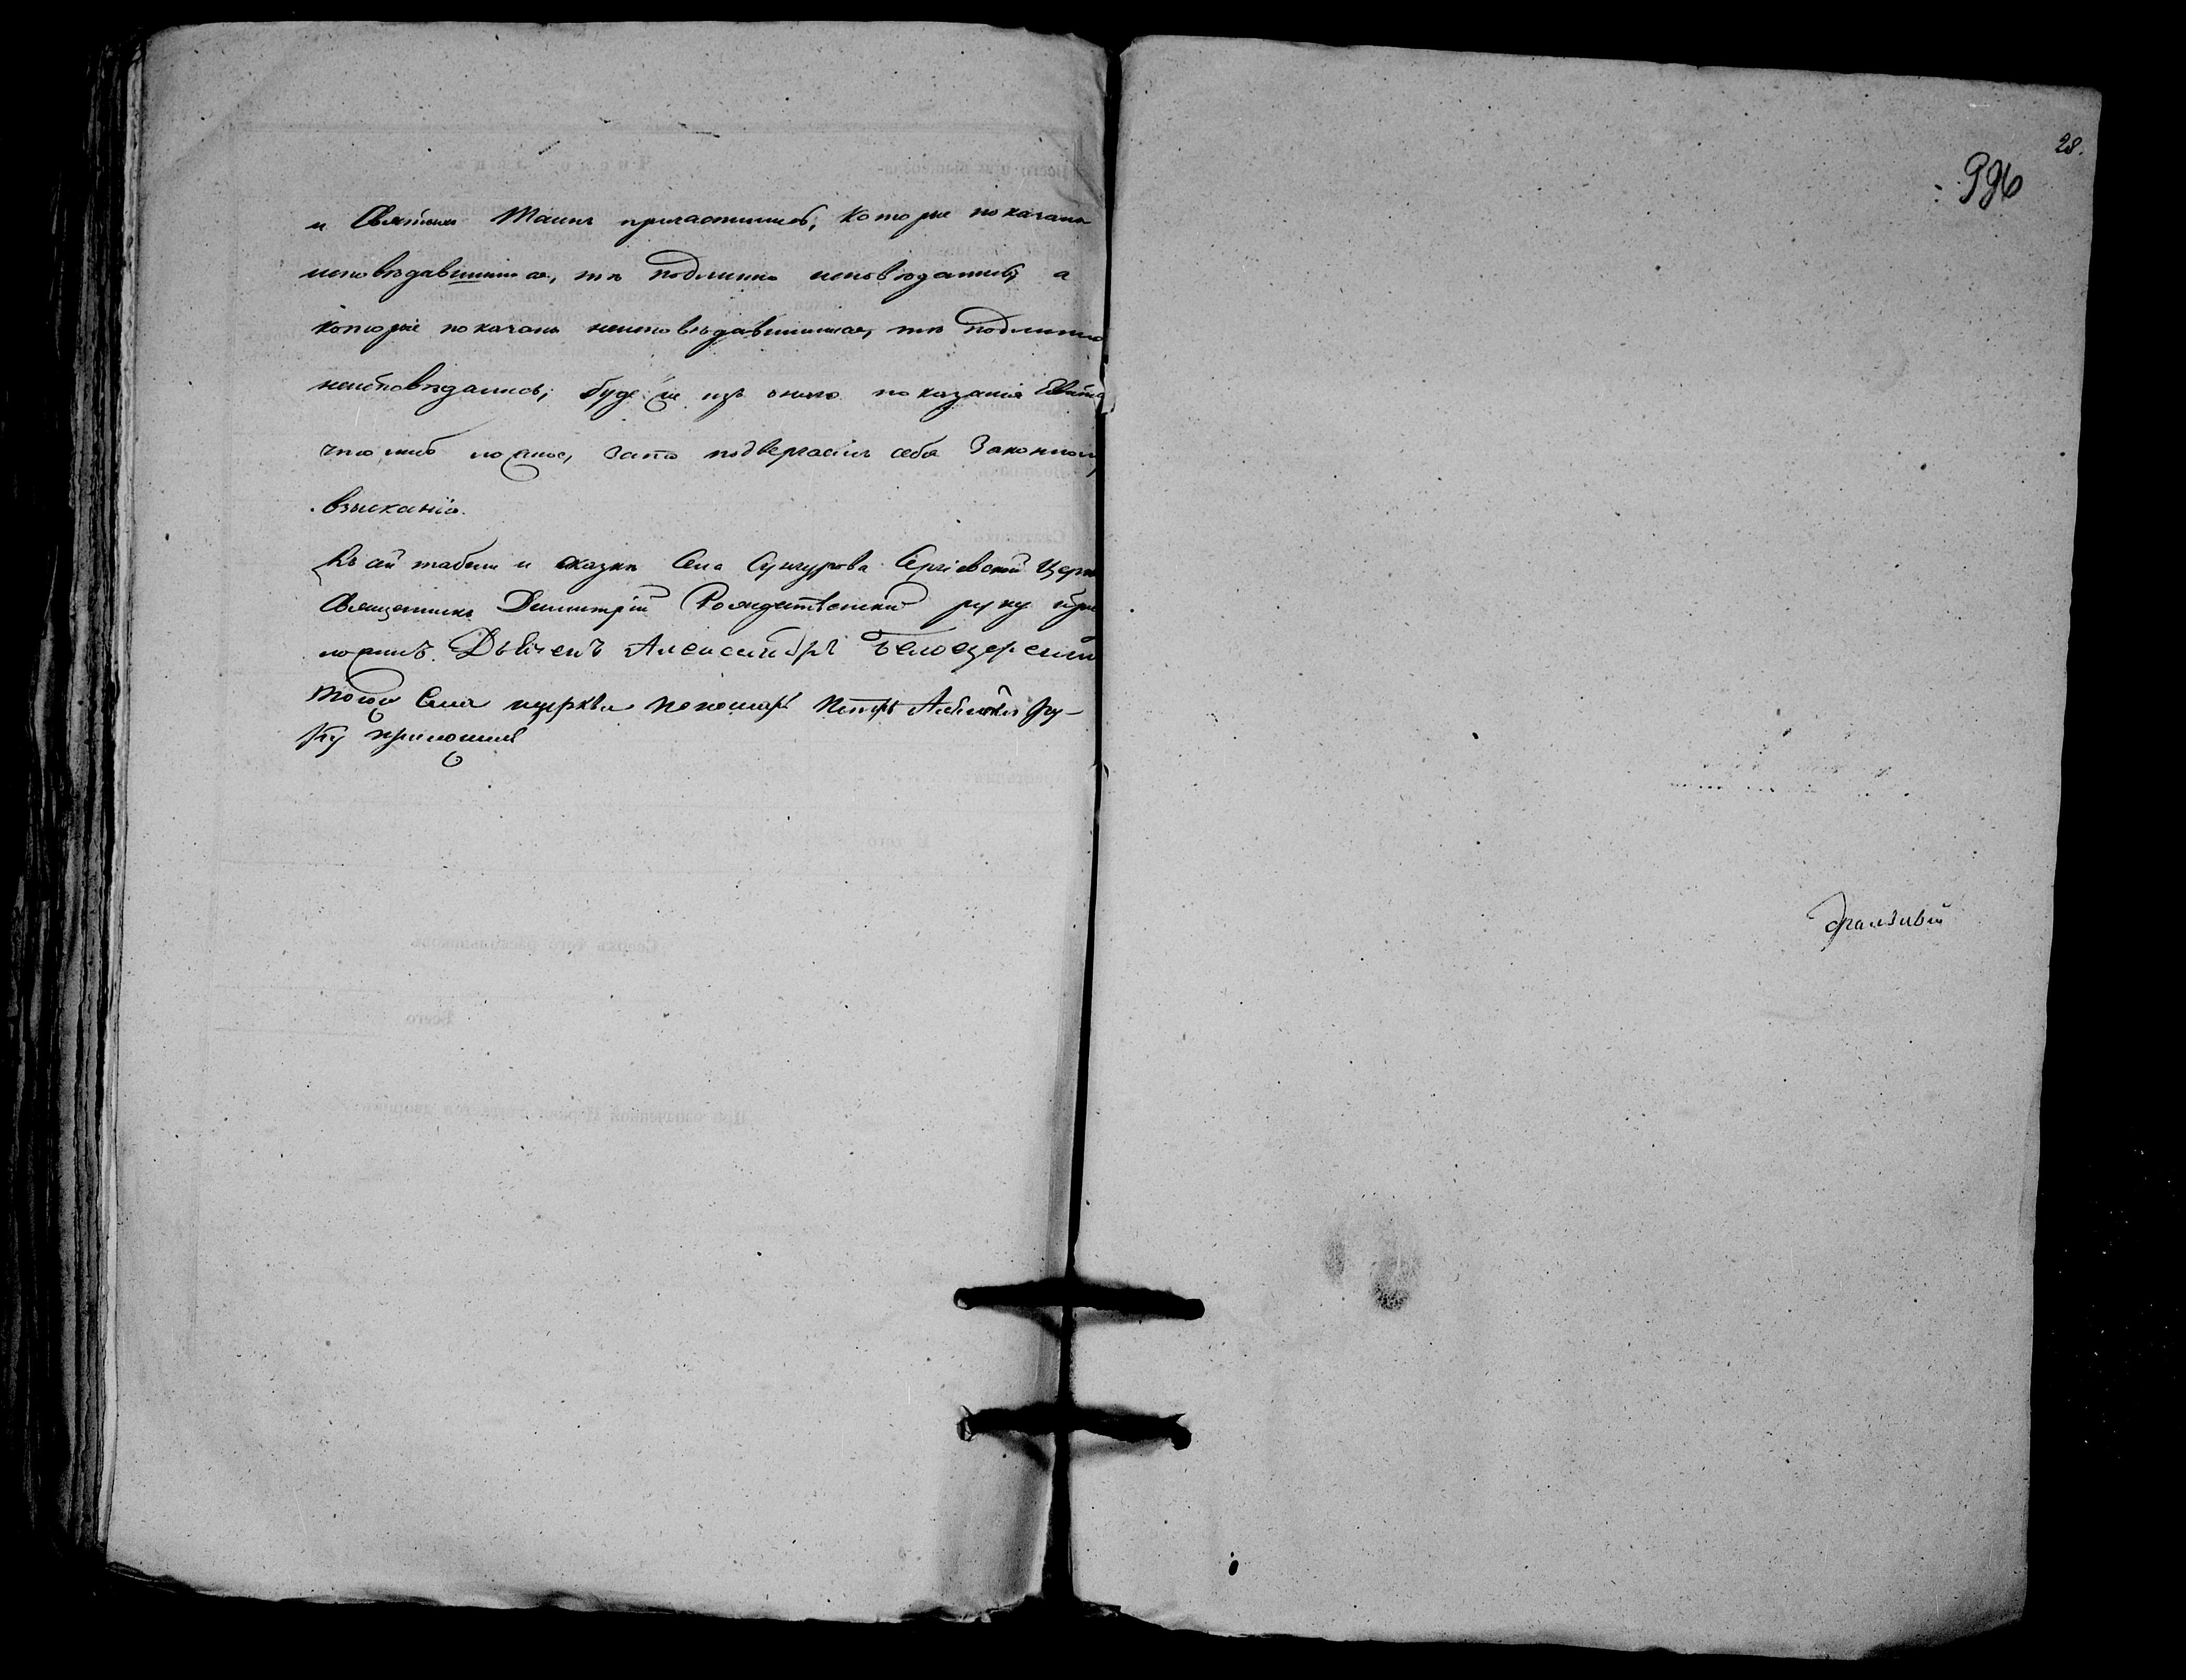 и Святыхъ Таинъ причастились; которые показаны
исповѣдавшимися, тѣ подлинно исповѣдались, а
которые показаны неисповѣдавшимися, тѣ подлинно
неисповѣдались; буде же изъ онаго показанія явится
что либо ложное, зато подвергаемъ себя законному
взысканію.
Къ сей табели и сказкѣ Села Сунгурова Сергіевской Церкви
Священникъ Димитрій Рождественскій руку при
ложилъ. Дьячекъ Александръ Белоезерскій
тойже Села церкви пономарь Петръ ру-
ку приложилъ
28.
996